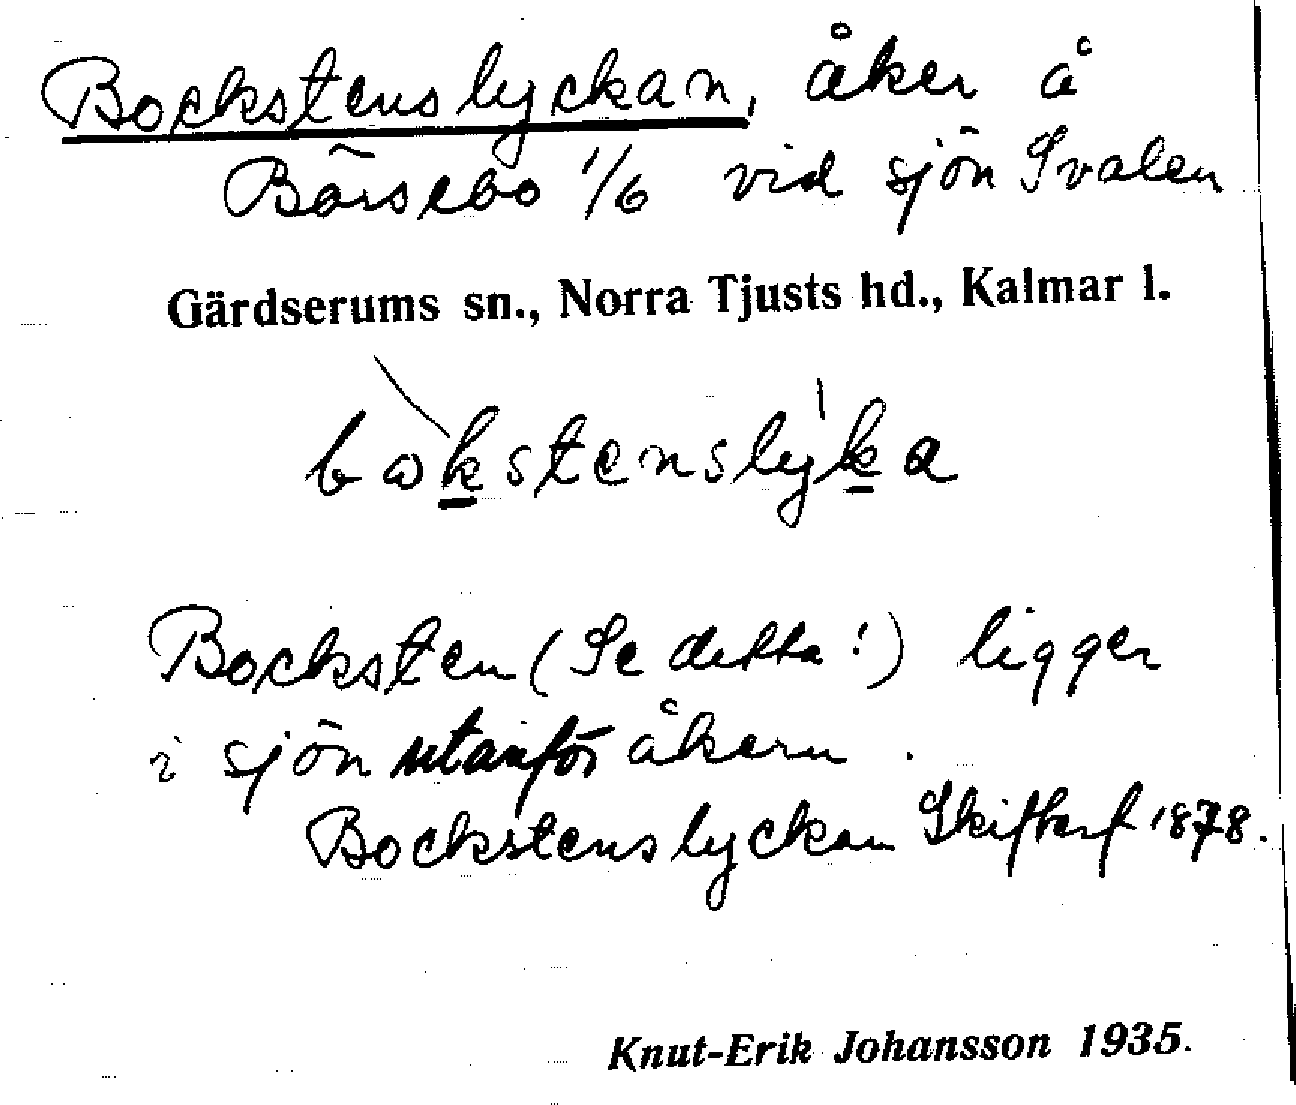 Bockstenslyckan, åker å
Börsebo 1/6 vid sjön Svalen
Gärdserums sn., Norra Tjusts hd., Kalmar l.
bωkstenslyka
Bocksten (Se detta!) ligger
i sjön utanför åkern.
Bockstenslyckan Skifteref 1878.
Knut-Erik Johansson 1935.